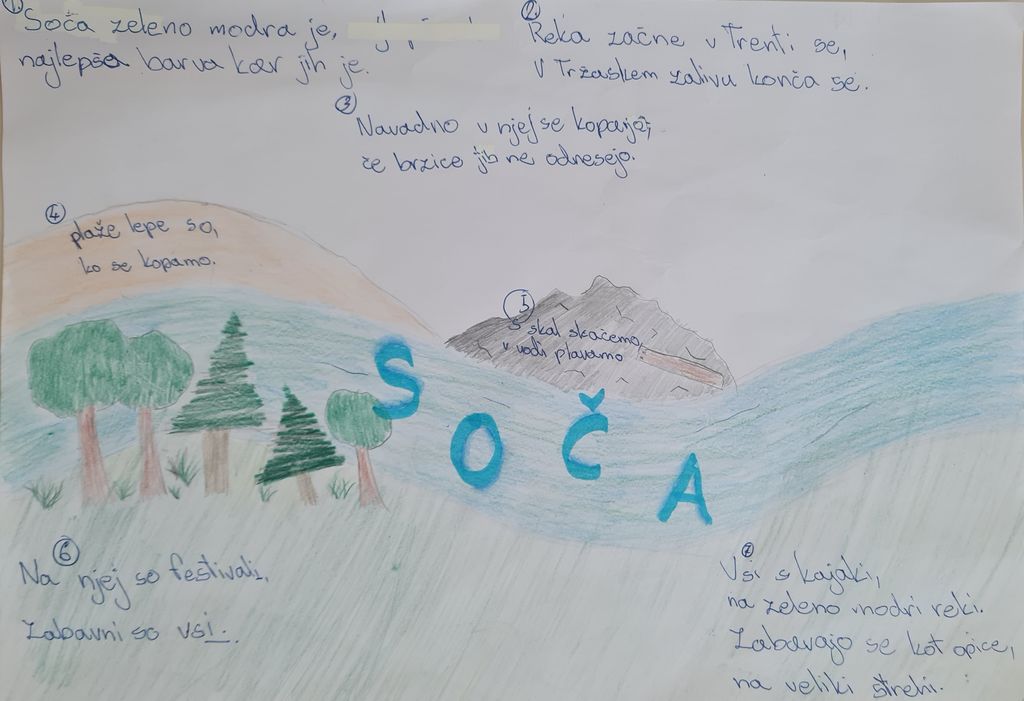 1
Soča zeleno modra je,
najlepša barva kar jih je.
2.
Reka začne v Trenti se,
V Tržaškem zalivu konča se.
3
Navadno v njej se kopajo,
če brzice jih ne odnesejo.
4
plaže lepe so,
ko se kopamo.
5
S skal skačemo,
v vodi plavamo
SOČA
6
Na njej so festivali,
Zabavni so vsi.
7
Vsi s kajaki,
na zeleno modri reki.
Zabavajo se kot opice,
na veliki štrehi.